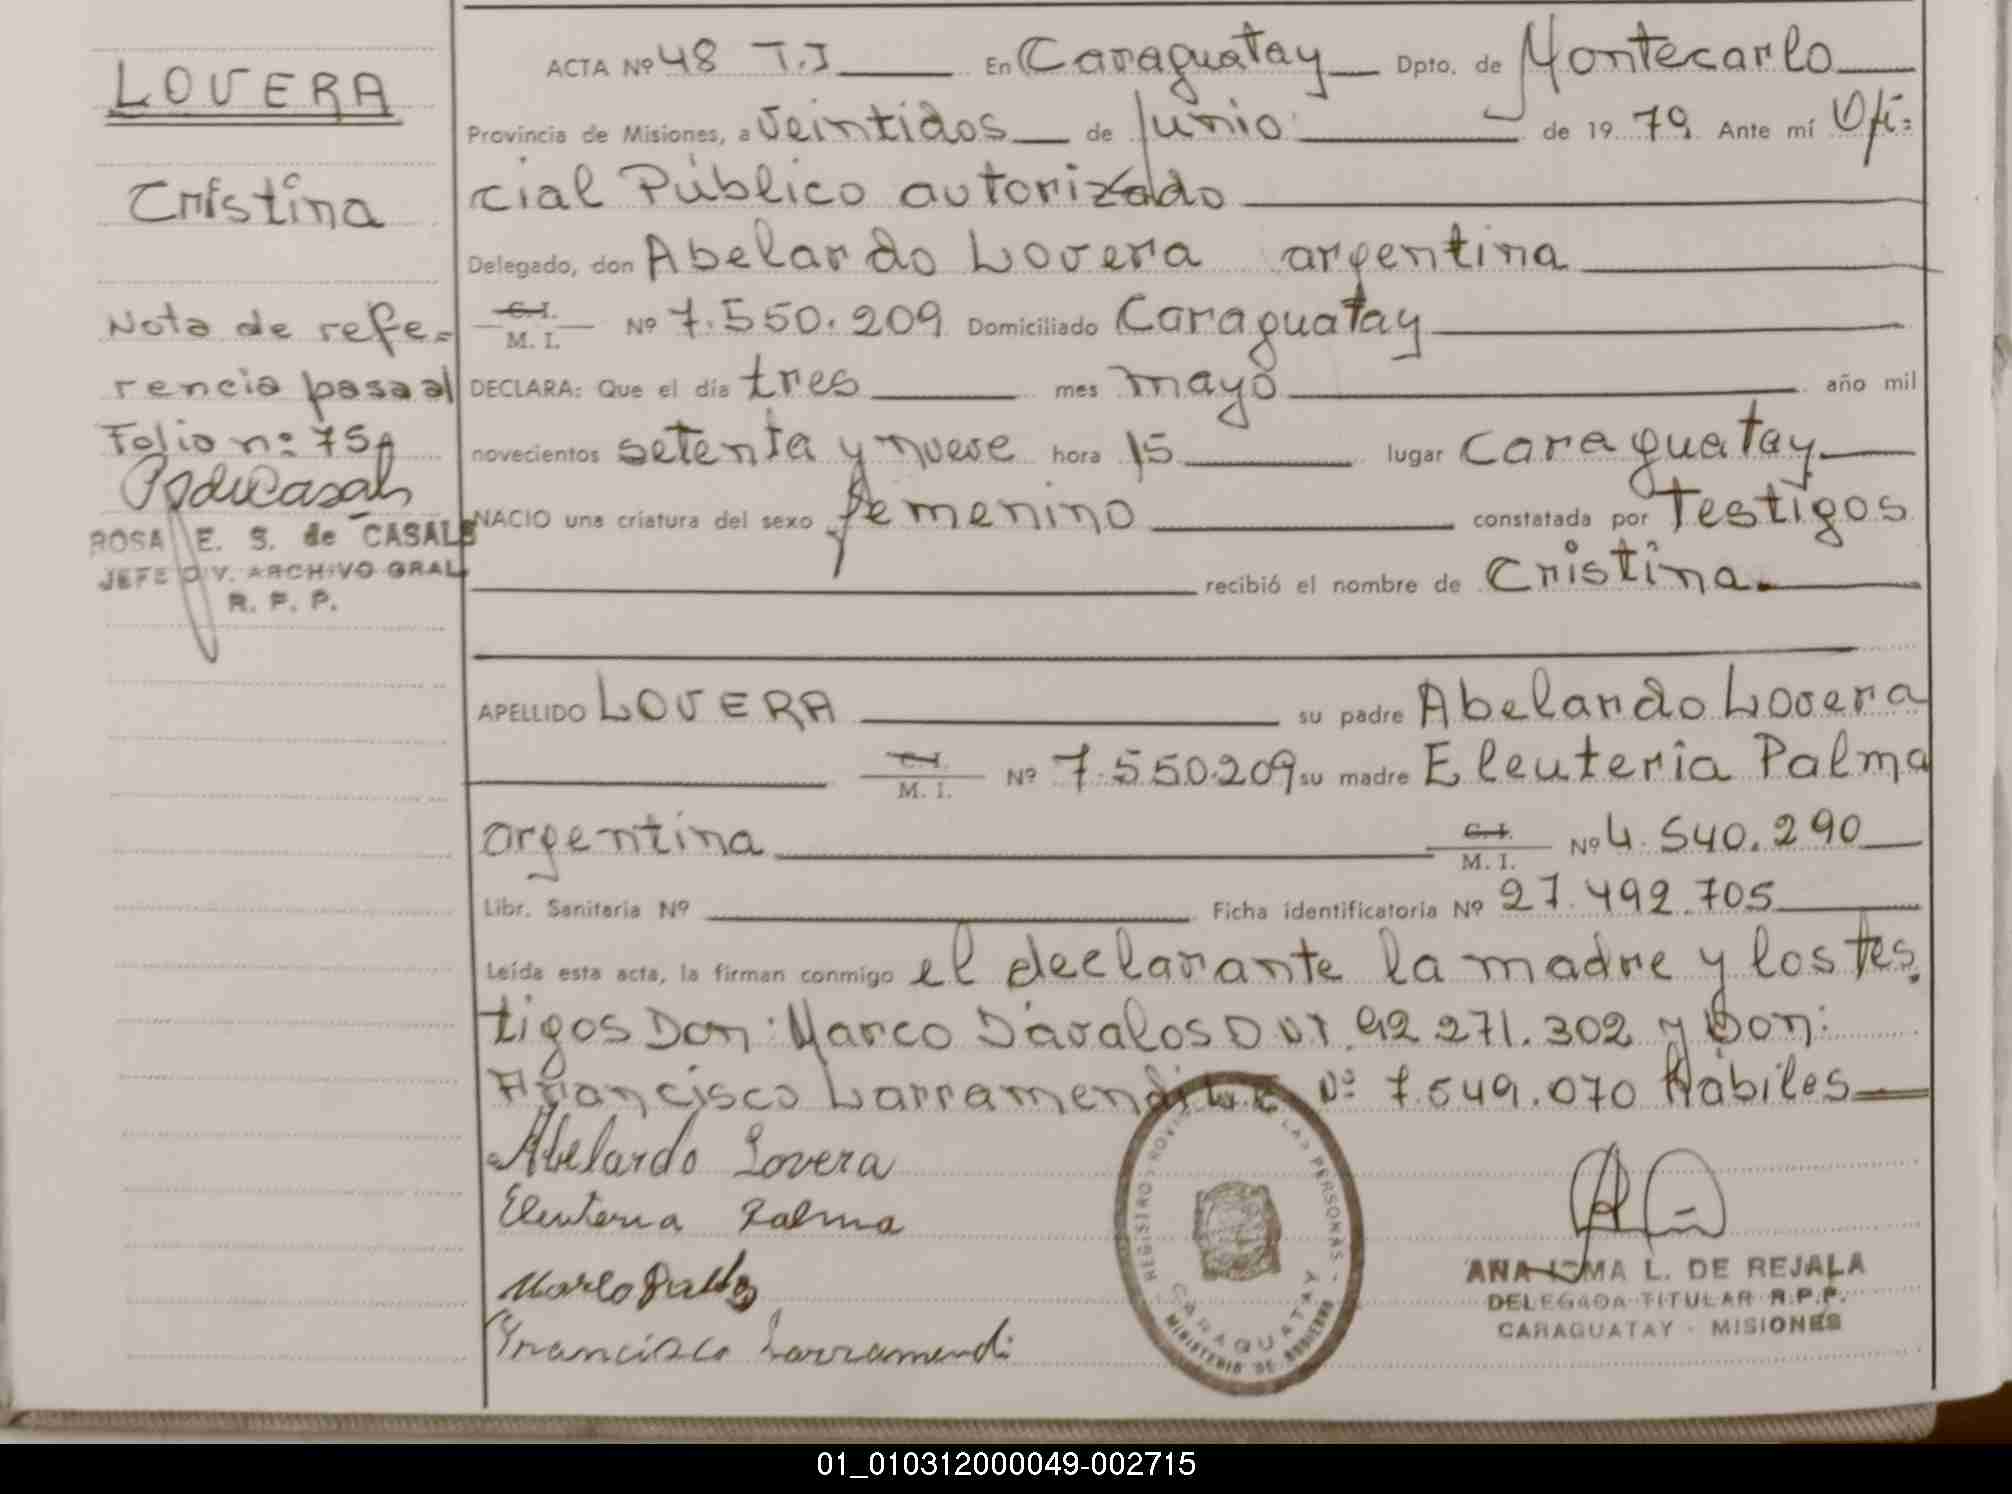 LOVERA
Cristina
Nota de refe=
rencia pasa al
Folio nº 75A
ROSA E. S. de CASALS
JEFE DIV. ARCHIVO GRAL
R. P. P.
ACTA Nº 48 T.I En Caraguatay Dpto. de Montecarlo
Provincia de Misiones, a veintidos de Junio de 19 79 Ante mí Ofi=
cial Público autorizado
Delegado, don Abelardo Lovera argentina
C. I. M. I. Nº 7.550.209 Domiciliado Caraguatay
DECLARA: Que el día tres mes mayo año mil
novecientos setenta y nueve hora 15 lugar Caraguatay
NACIO una criatura del sexo femenino constatada por Testigos
recibió el nombre de Cristina.
APELLIDO LOVERA su padre Abelardo Lovera
C. I. M. I. Nº 7.550.209 su madre Eleuteria Palma
argentina C. I. M. I. Nº 4.540.290
Libr. Sanitaria Nº Ficha identificatoria Nº 27.492.705
Leída esta acta, la firman conmigo el declarante la madre y los tes
tigos Don: Marco Dávalos D N I. 92 271.302 y Don:
Francisco Larramendi L.E Nº 7.549.070 Hábiles
Abelardo Lovera
Eleuteria Palma
Francisco Larramendi
REGISTRO PROVINCIAL DE LAS PERSONAS
CARAGUATAY
MINISTERIO DE GOBIERNO
ANA IRMA L. DE REJALA
DELEGADA TITULAR R.P.P.
CARAGUATAY - MISIONES
01_010312000049-002715